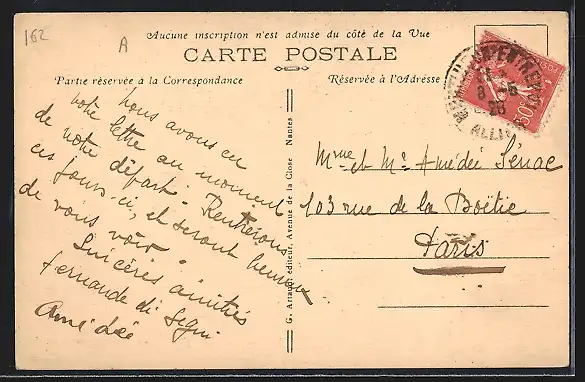 162
A
Aucune inscription n'est admise du côté de la Vue
CARTE POSTALE
Partie réservée à la Correspondance
Réservée à l'Adresse
nous avons eu
votre lettre au moment
de notre départ. Rentrerons
ces jours-ci, et seront heureux
de vous voir.
Sincères amitiés
fernande di Segni
Amédée
G. Artaud éditeur, Avenue de la Close Nantes
Mme et Mr Amédée Sénac
103 rue de la Boëtie
Paris
50c
ALLIER